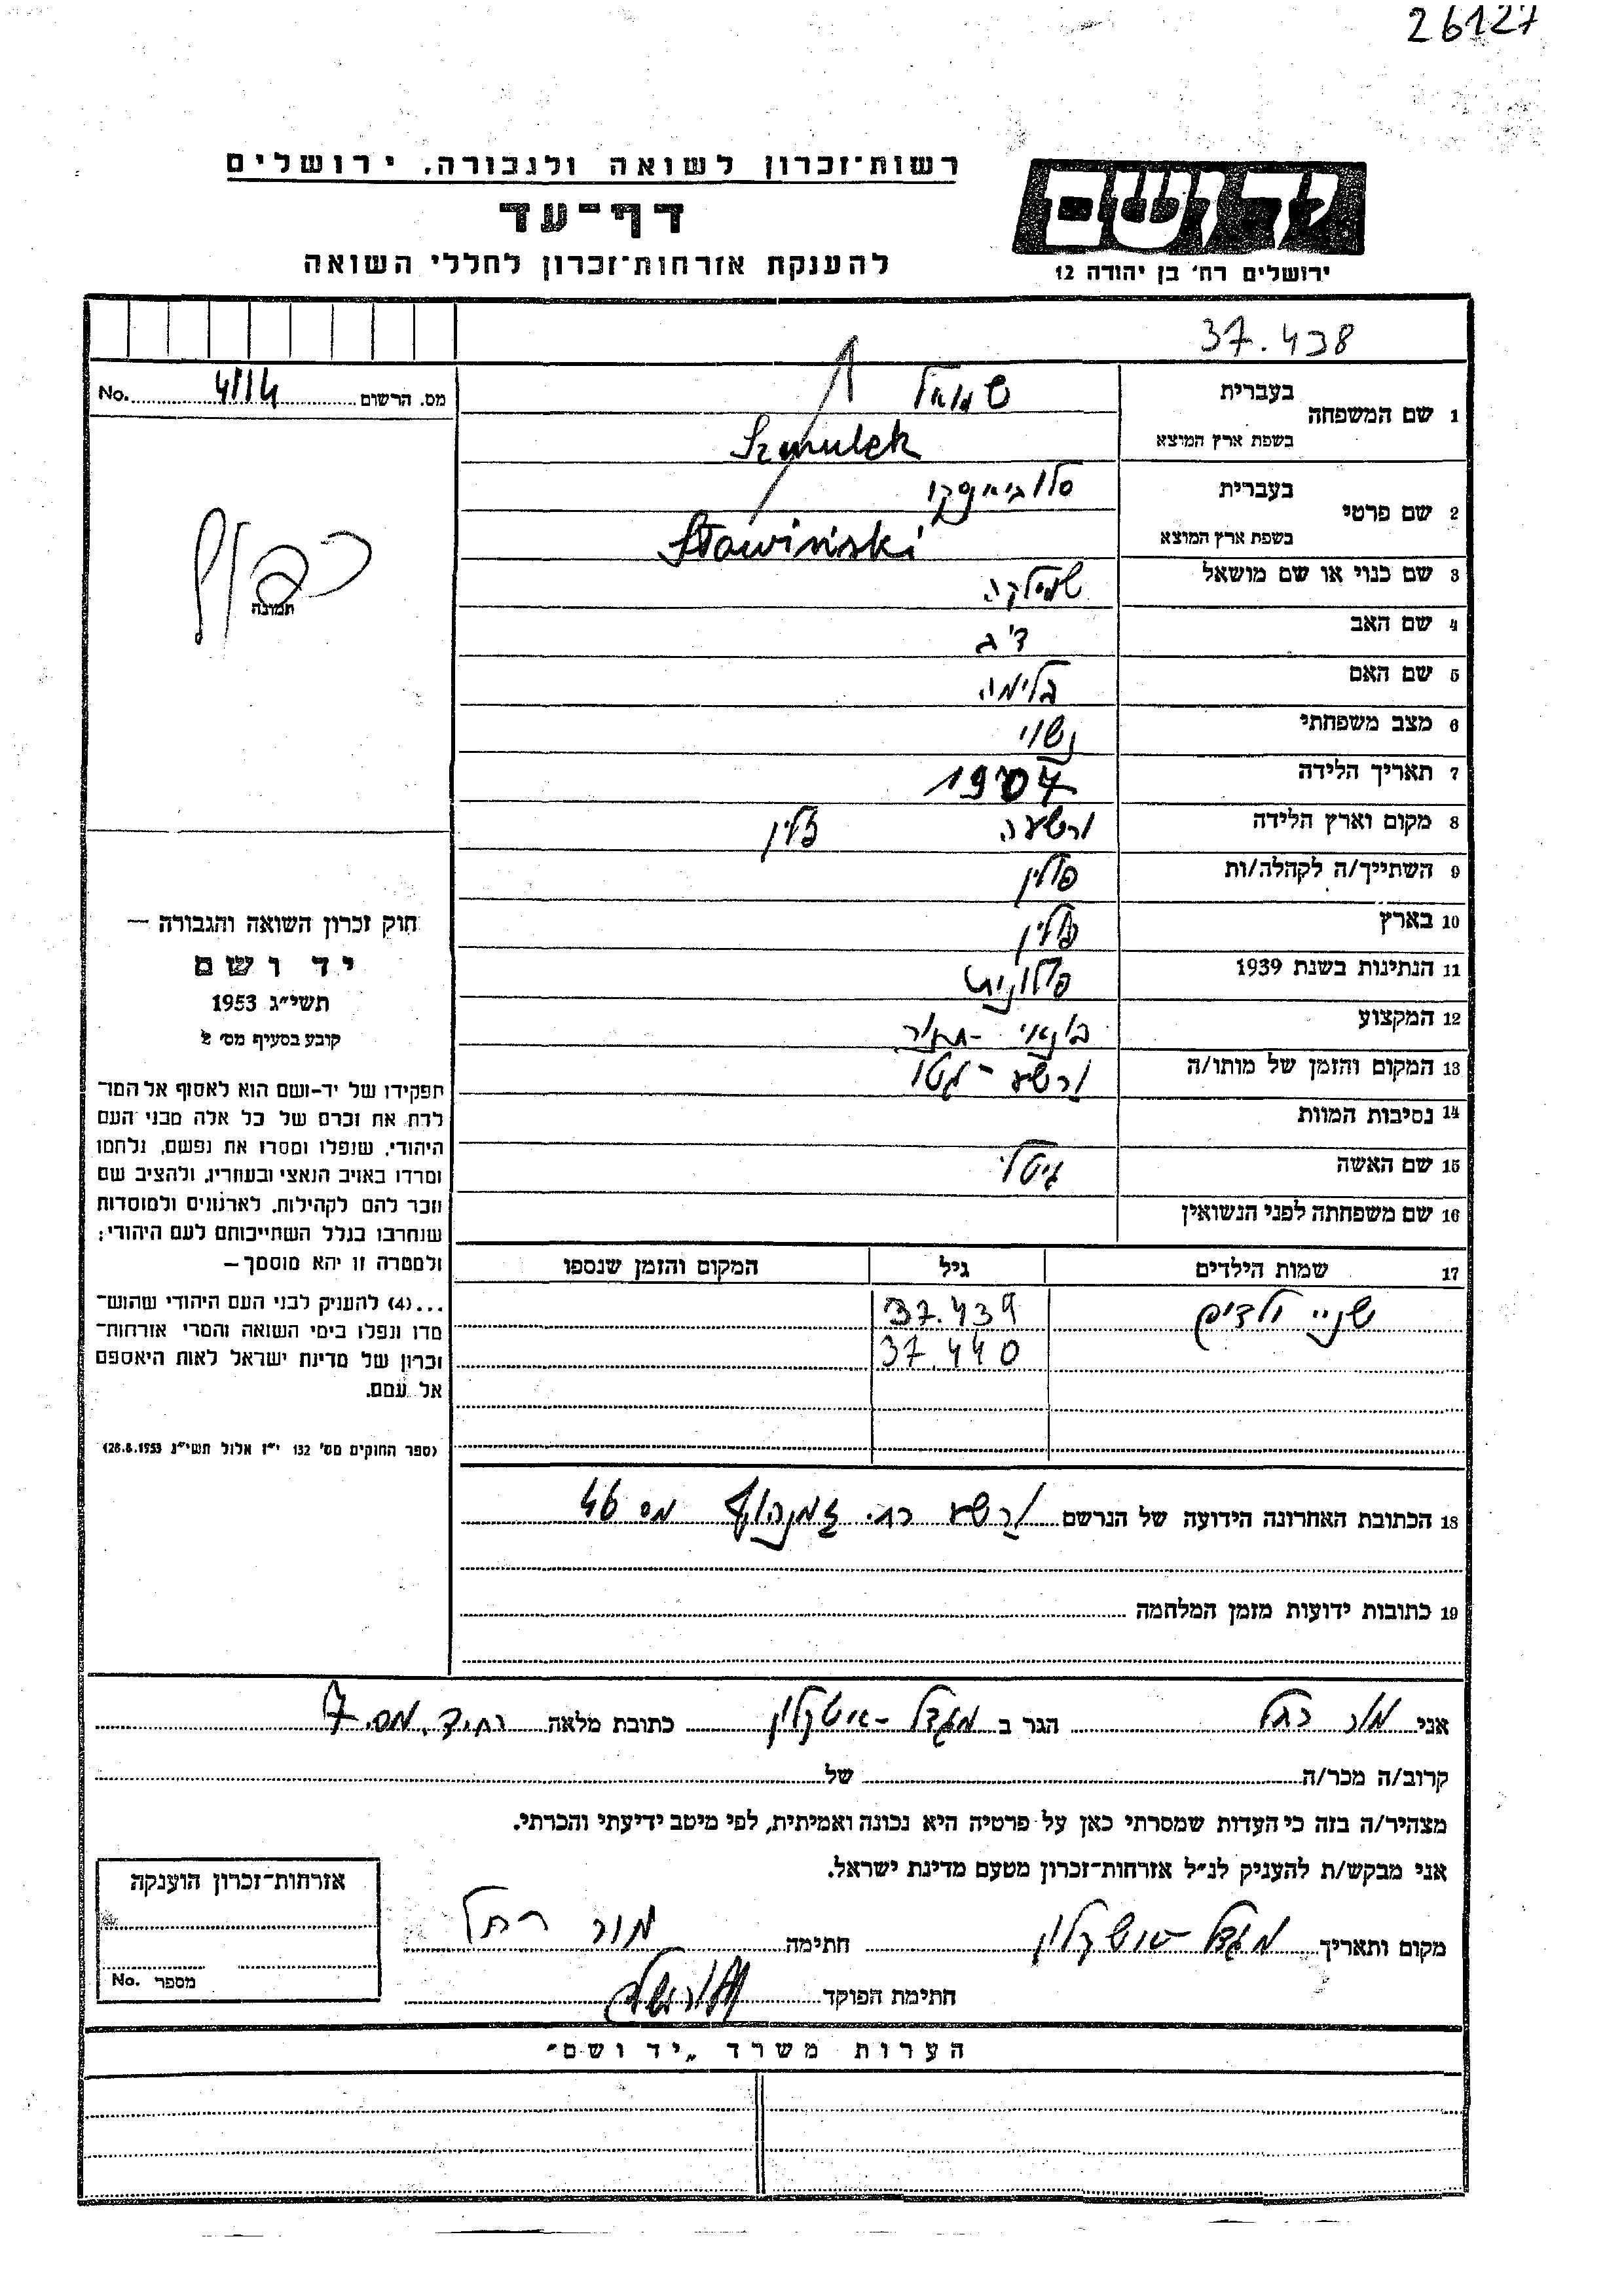 26127
רשות־זכרון לשואה ולגבורה, ירושלים
דף־עד
להענקת אזרחות־זכרון לחללי השואה
יד ושם
ירושלים רח׳ בן יהודה 12
37.438
מס. הרשום 4114 No.
1 שם המשפחה בעברית שמואל
בשפת ארץ המוצא Szmulek
2 שם פרטי בעברית
בשפת ארץ המוצא Sławiński
3 שם כנוי או שם מושאל שמילקה
4 שם האב
5 שם האם בלימה
6 מצב משפחתי נשוי
7 תאריך הלידה 1907
8 מקום וארץ הלידה ורשעה פולין
9 השתייך/ה לקהלה/ות פולין
10 בארץ פולין
11 הנתינות בשנת 1939 פולונית
12 המקצוע
13 המקום והזמן של מותו/ה ורשע - גטו
14 נסיבות המוות
15 שם האשה גיטל
16 שם משפחתה לפני הנשואין
17 שמות הילדים גיל המקום והזמן שנספו
שניי ילדים 37.439
37.440
תמונה
חוק זכרון השואה והגבורה —
יד ושם
תשי״ג 1953
קובע בסעיף מס׳ 2
תפקידו של יד-ושם הוא לאסוף אל המו־
לדת את זכרם של כל אלה מבני העם
היהודי, שנפלו ומסרו את נפשם, נלחמו
ומרדו באויב הנאצי ובעוזריו, ולהציב שם
וזכר להם לקהילות, לארגונים ולמוסדות
שנחרבו בגלל השתייכותם לעם היהודי;
ולמטרה זו יהא מוסמך —
...(4) להעניק לבני העם היהודי שהוש־
מדו ונפלו בימי השואה והמרי אזרחות־
זכרון של מדינת ישראל לאות היאספם
אל עמם.
(ספר החוקים מס׳ 132 י״ז אלול תשי״ג 28.8.1953)
18 הכתובת האחרונה הידועה של הנרשם ורשע רח. זמנהוף מס 46
19 כתובות ידועות מזמן המלחמה
אני מור רחל הגר ב מגדל - אשקלון כתובת מלאה מס. 7
קרוב/ה מכר/ה של
מצהיר/ה בזה כי העדות שמסרתי כאן על פרטיה היא נכונה ואמיתית, לפי מיטב ידיעתי והכרתי.
אני מבקש/ת להעניק לנ״ל אזרחות־זכרון מטעם מדינת ישראל.
מקום ותאריך מגדל - אשקלון חתימה מור רחל
חתימת הפוקד
אזרחות־זכרון הוענקה
מספר No.
הערות משרד „יד ושם״